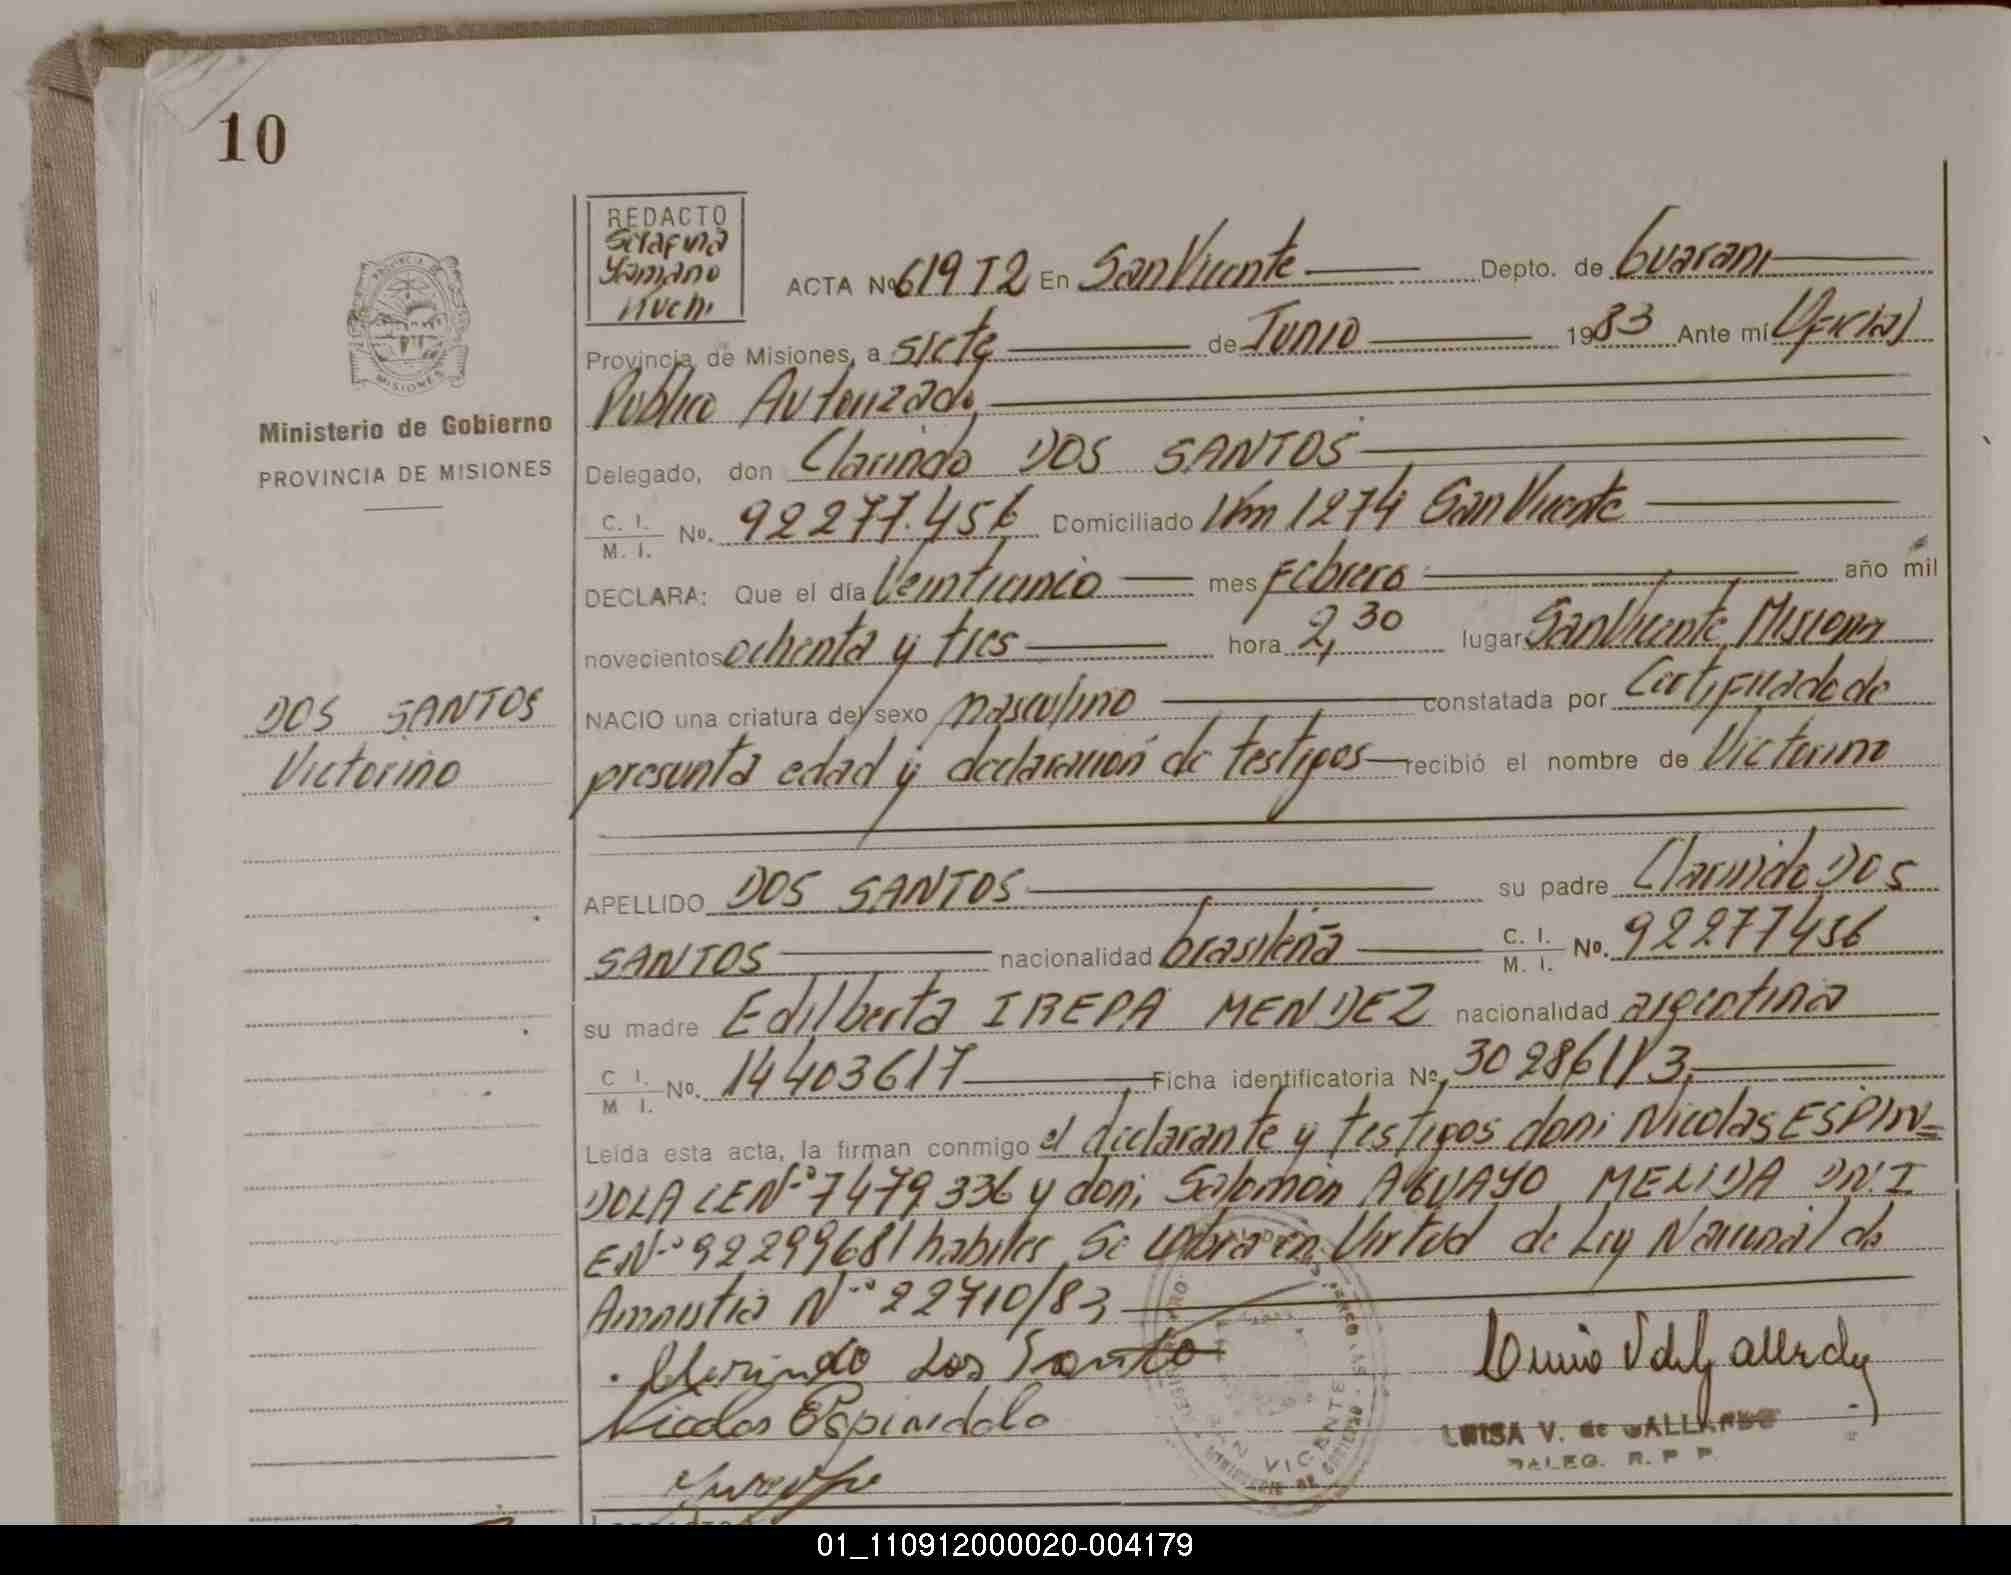 10
REDACTO
Serafina
ACTA Nº 619 T2 En San Vicente Depto. de Guarani
Provincia de Misiones, a siete de Junio 1983 Ante mi Oficial
Publico Autorizado
Delegado, don Clarindo DOS SANTOS
C. I.
M. I. Nº. 92277.456 Domiciliado Km 1274 San Vicente
DECLARA: Que el día Veinticinco mes Febrero año mil
novecientos ochenta y tres hora 2,30 lugar San Vicente, Misiones
NACIO una criatura del sexo masculino constatada por Certificado de
presunta edad y declaración de testigos recibió el nombre de Victorino
APELLIDO DOS SANTOS su padre Clarindo DOS
SANTOS nacionalidad brasileña C. I.
M. I. Nº. 92277456
su madre Edilberta IREPA MENDEZ nacionalidad argentina
C I.
M I. Nº. 14403617 Ficha identificatoria Nº 30286113
Leída esta acta, la firman conmigo el declarante y testigos don: Nicolas ESPIN-
DOLA LE Nº 7479336 y don: Salomón AGUAYO MELIDA DN.I
E.Nº 92299681 habiles Se labra en Virtud de Ley Nacional de
Amnistia Nº 22710/83
Clarindo dos Santo
Nicolas Espindola
LUISA V. de GALLARDO
DALEG. R. P P.
MISIONES
Ministerio de Gobierno
PROVINCIA DE MISIONES
DOS SANTOS
Victorino
SAN VICENTE
01_110912000020-004179